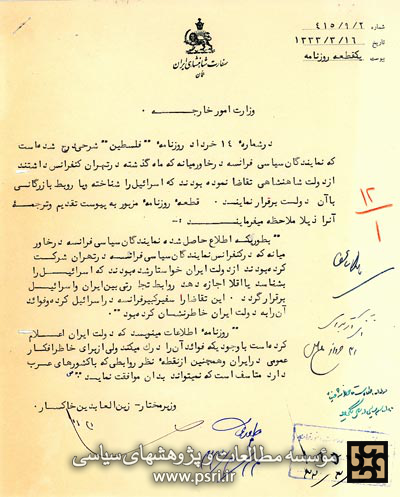 شماره ۴۱۵/۹/۲
تاریخ ۱۳۳۳/۳/۱۶
پیوست یکقطعه روزنامه
سفارت شاهنشاهی ایران
عمان
وزارت امور خارجه .
در شماره ۱۴ خرداد روزنامه " فلسطین " شرحی درج شده است
که نمایندگان سیاسی فرانسه در خاورمیانه که ماه گذشته در تهران کنفرانس داشتند
از دولت شاهنشاهی تقاضا نموده بودند که اسرائیل را شناخته و یا روابط بازرگانی
با آن دولت برقرار نمایند . قطعه روزنامه مزبور به پیوست تقدیم و ترجمه
آنرا ذیلا ملاحظه میفرمایند :-
" بطوریکه اطلاع حاصل شده نمایندگان سیاسی فرانسه در خاور
میانه که در کنفرانس نمایندگان سیاسی فرانسه در تهران شرکت
کرده بودند از دولت ایران خواستار شده بودند که اسرائیل را
بشناسد یا اقلا اجازه دهد روابط تجارتی بین ایران و اسرائیل
برقرار گردد . این تقاضا را سفیر کبیر فرانسه در اسرائیل کرده و فوائد
آنرا به دولت ایران خاطرنشان کرده بود "
" روزنامه اطلاعات مینویسد که دولت ایران اعلام
کرده است با وجودیکه فوائد آنرا درک میکند ولی از برای خاطر افکار
عمومی در ایران و همچنین از نقطه نظر روابطی که با کشورهای عرب
دارد متاسف است که نمیتواند بدان موافقت نماید "
وزیر مختار - زین العابدین خاکسار
۱۲
۱
مؤسسه مطالعات و پژوهشهای سیاسی
www.psri.ir